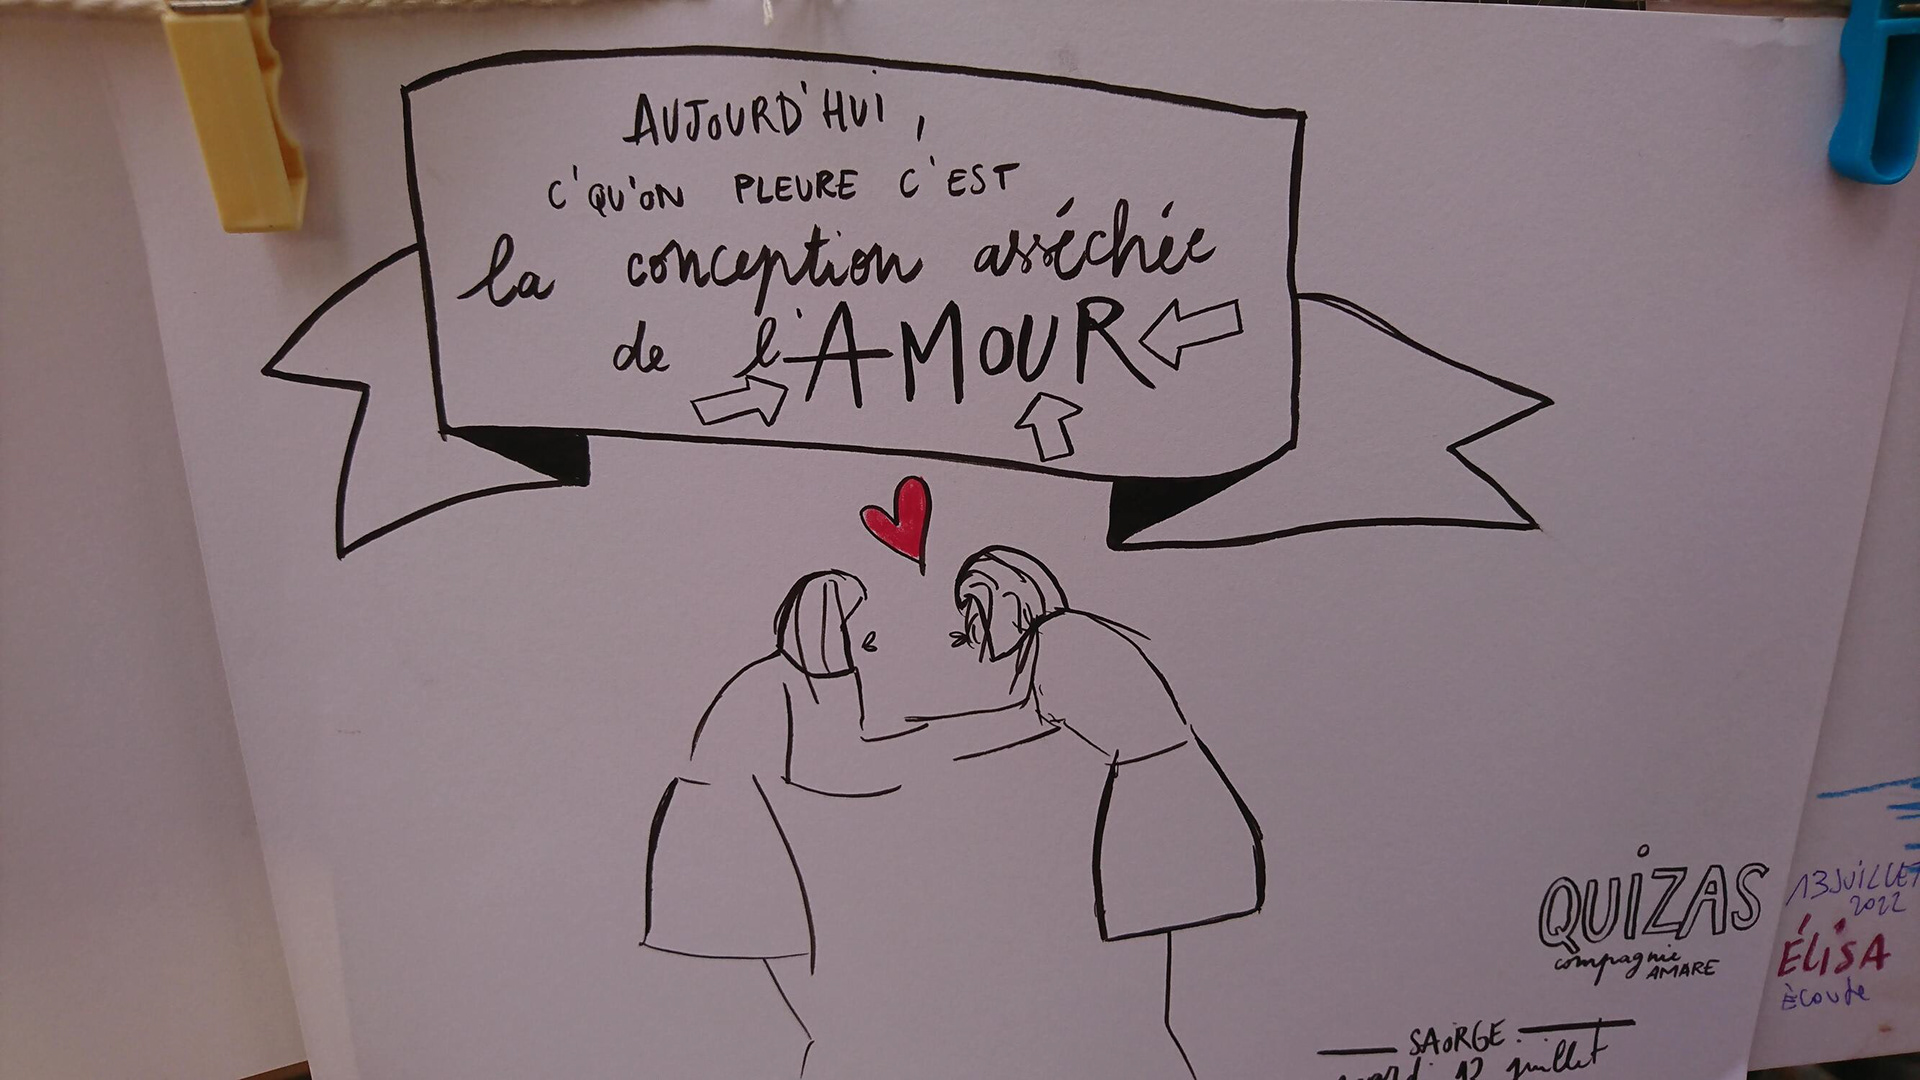 AUJOURD'HUI,
C'QU'ON PLEURE C'EST
la conception asséchée
de l'AMOUR
QUIZAS
compagnie
AMARE
SAORGE
12 juillet
13 JUILLET
2022
ÉLISA
Écoute